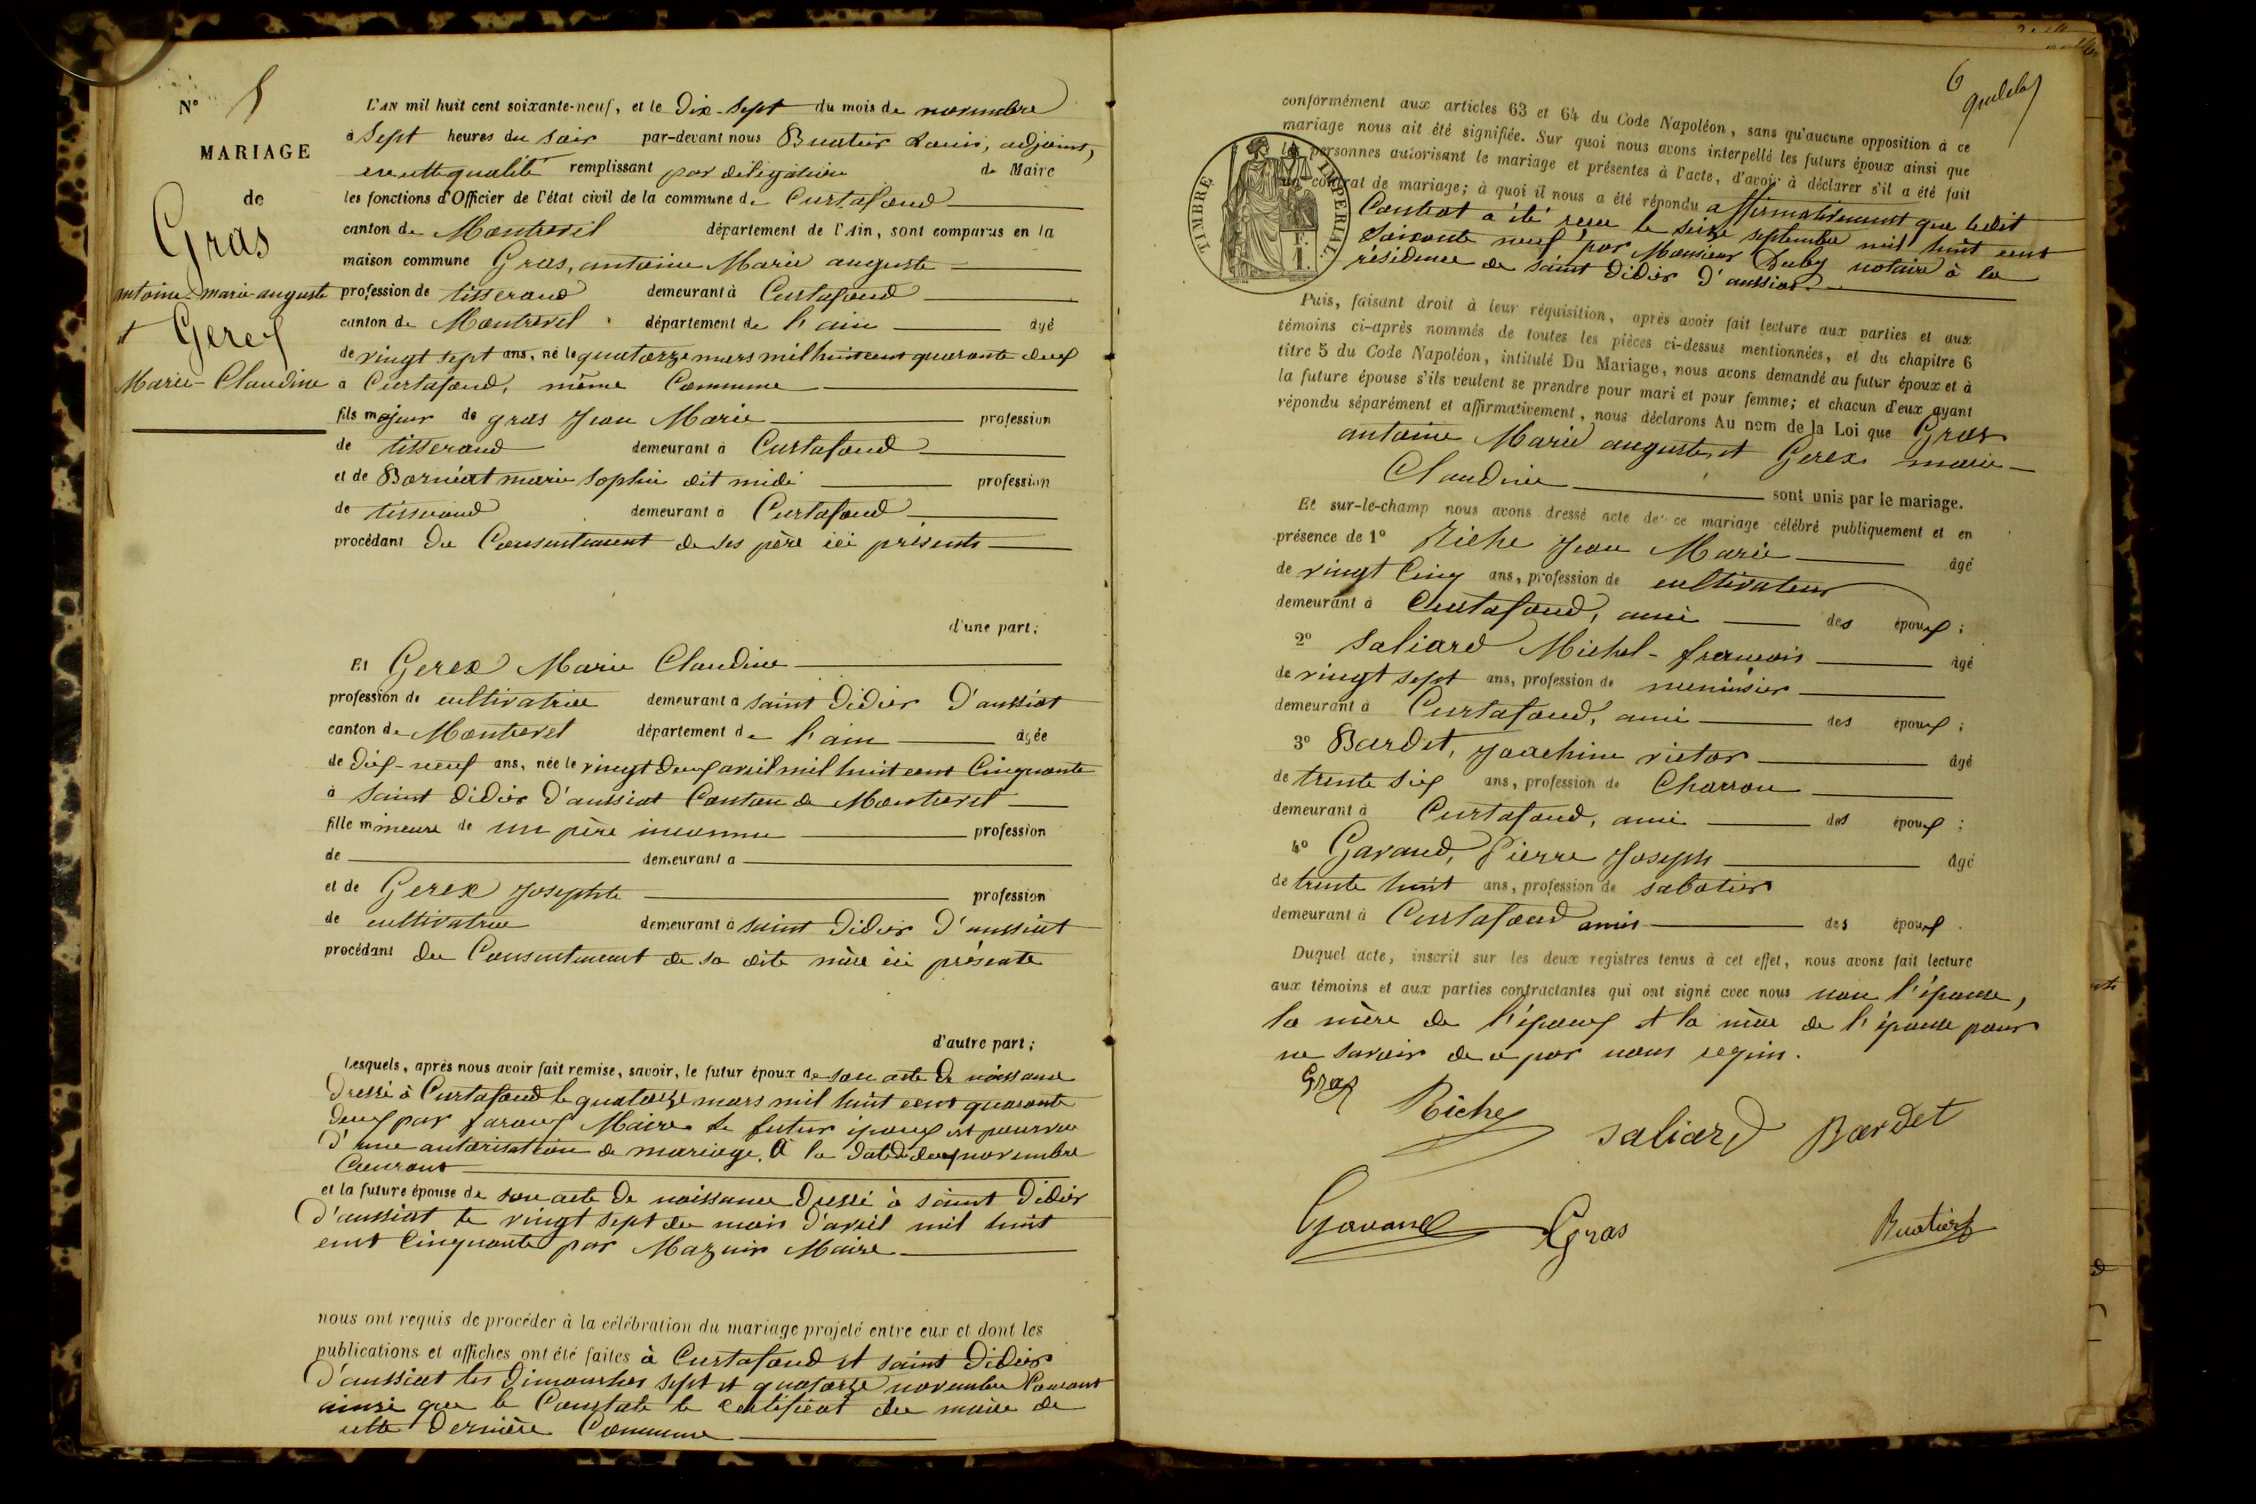 N° 5
MARIAGE
de
Gras
antoine-marie-auguste
et Gerex
Marie-Claudine
L'AN mil huit cent soixante-neuf, et le dix-sept du mois de novembre
à sept heures du soir par-devant nous Buatier Louis, adjoint,
en cette qualité remplissant par délégation de Maire
les fonctions d'Officier de l'état civil de la commune de Curtafond
canton de Montrevel département de l'Ain, sont comparus en la
maison commune Gras, antoine Marie auguste
profession de tisserand demeurant à Curtafond
canton de Montrevel département de l'ain âgé
de vingt sept ans, né le quatorze mars mil huit cent quarante deux
à Curtafond, même Commune
fils majeur de gras Jean Marie profession
de tisserand demeurant à Curtafond
et de Borniat marie Sophie dit midi profession
de tisserand demeurant à Curtafond
procédant du Consentement de ses père ici présents
d'une part;
Et Gerex Marie Claudine
profession de cultivatrice demeurant à saint Didier d'aussiat
canton de Montrevel département de l'ain âgée
de dix-neuf ans, née le vingt deux avril mil huit cent Cinquante
à saint Didier d'aussiat Canton de Montrevel
fille mineure de un père inconnu profession
de demeurant à
et de Gerex Josephte profession
de cultivatrice demeurant à saint Didier d'aussiat
procédant du Consentement de sa dite mère ici présente
d'autre part;
Lesquels, après nous avoir fait remise, savoir, le futur époux de son acte de naissance
dressé à Curtafond le quatorze mars mil huit cent quarante
deux par faroux Maire le futur époux est pourvu
d'une autorisation de mariage, à la date du deux novembre
Courant
et la future épouse de son acte de naissance dressé à saint Didier
d'aussiat le vingt sept du mois d'avril mil huit
cent Cinquante par Mazuir Maire
nous ont requis de procéder à la célébration du mariage projeté entre eux et dont les
publications et affiches ont été faites à Curtafond et saint Didier
d'aussiat les dimanches sept et quatorze novembre Courant
ainsi que le Constate le certificat du maire de
cette dernière Commune
6
conformément aux articles 63 et 64 du Code Napoléon, sans qu'aucune opposition à ce
mariage nous ait été signifiée. Sur quoi nous avons interpellé les futurs époux ainsi que
les personnes autorisant le mariage et présentes à l'acte, d'avoir à déclarer s'il a été fait
un contrat de mariage; à quoi il nous a été répondu affirmativement que ledit
Contrat a été reçu le seize septembre mil huit cent
soixante neuf par Monsieur Duby notaire à la
résidence de saint Didier d'aussiat.
TIMBRE IMPERIAL.
1 F.
Puis, faisant droit à leur réquisition, après avoir fait lecture aux parties et aux
témoins ci-après nommés de toutes les pièces ci-dessus mentionnées, et du chapitre 6
titre 5 du Code Napoléon, intitulé Du Mariage, nous avons demandé au futur époux et à
la future épouse s'ils veulent se prendre pour mari et pour femme; et chacun d'eux ayant
répondu séparément et affirmativement, nous déclarons Au nom de la Loi que Gras
antoine Marie auguste et Gerex marie
Claudine sont unis par le mariage.
Et sur-le-champ nous avons dressé acte de ce mariage célébré publiquement et en
présence de 1° Riche Jean Marie âgé
de vingt Cinq ans, profession de cultivateur
demeurant à Curtafond, ami des époux;
2° Saliard Michel-françois âgé
de vingt sept ans, profession de menuisier
demeurant à Curtafond, ami des époux;
3° Bardet, Joachim victor âgé
de trente six ans, profession de Charron
demeurant à Curtafond, ami des époux;
4° Gavand, Pierre Joseph âgé
de trente huit ans, profession de sabotier
demeurant à Curtafond amis des époux.
Duquel acte, inscrit sur les deux registres tenus à cet effet, nous avons fait lecture
aux témoins et aux parties contractantes qui ont signé avec nous non l'épouse,
la mère de l'époux et la mère de l'épouse pour
ne savoir de ce par nous requis.
Gras
Riche
Saliard
Bardet
Gavand
Gras
Buatier